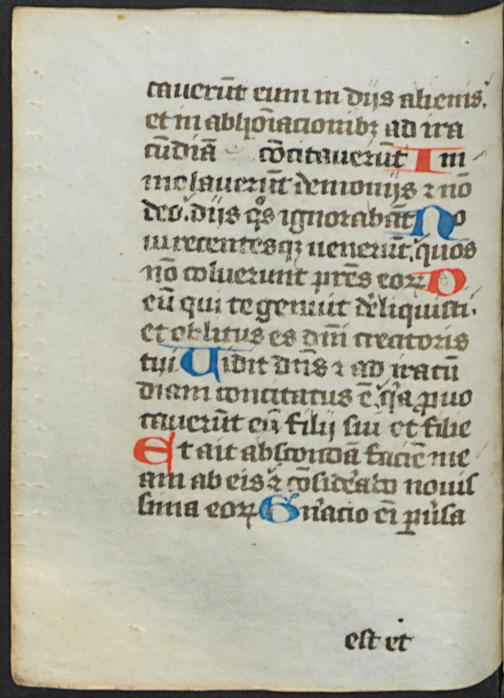 cauerūt eum in diis alienis.
et in abhoīacionibꝫ ad ira
cūdiā cōcitauerūt Im
molauerūt demoniis ⁊ nō
deo. diis q̄s ignorabāt No
ui recentesqꝫ uenerūt. quos
nō coluerunt pr̄es eoꝝ D
eū qui te genuit d̓eliquisti.
et oblitus es dn̄i creatoris
tui Uidit dn̄s ⁊ ad iracū
diam concitatus ē. q̓a ꝓuo
cauerūt eū filij sui et filie
Et ait abscondā faciē me
am ab eis ⁊ cōsid̓abo nouis
sima eoꝝ Gn̓acio em̄ ꝑu̓sa
est et